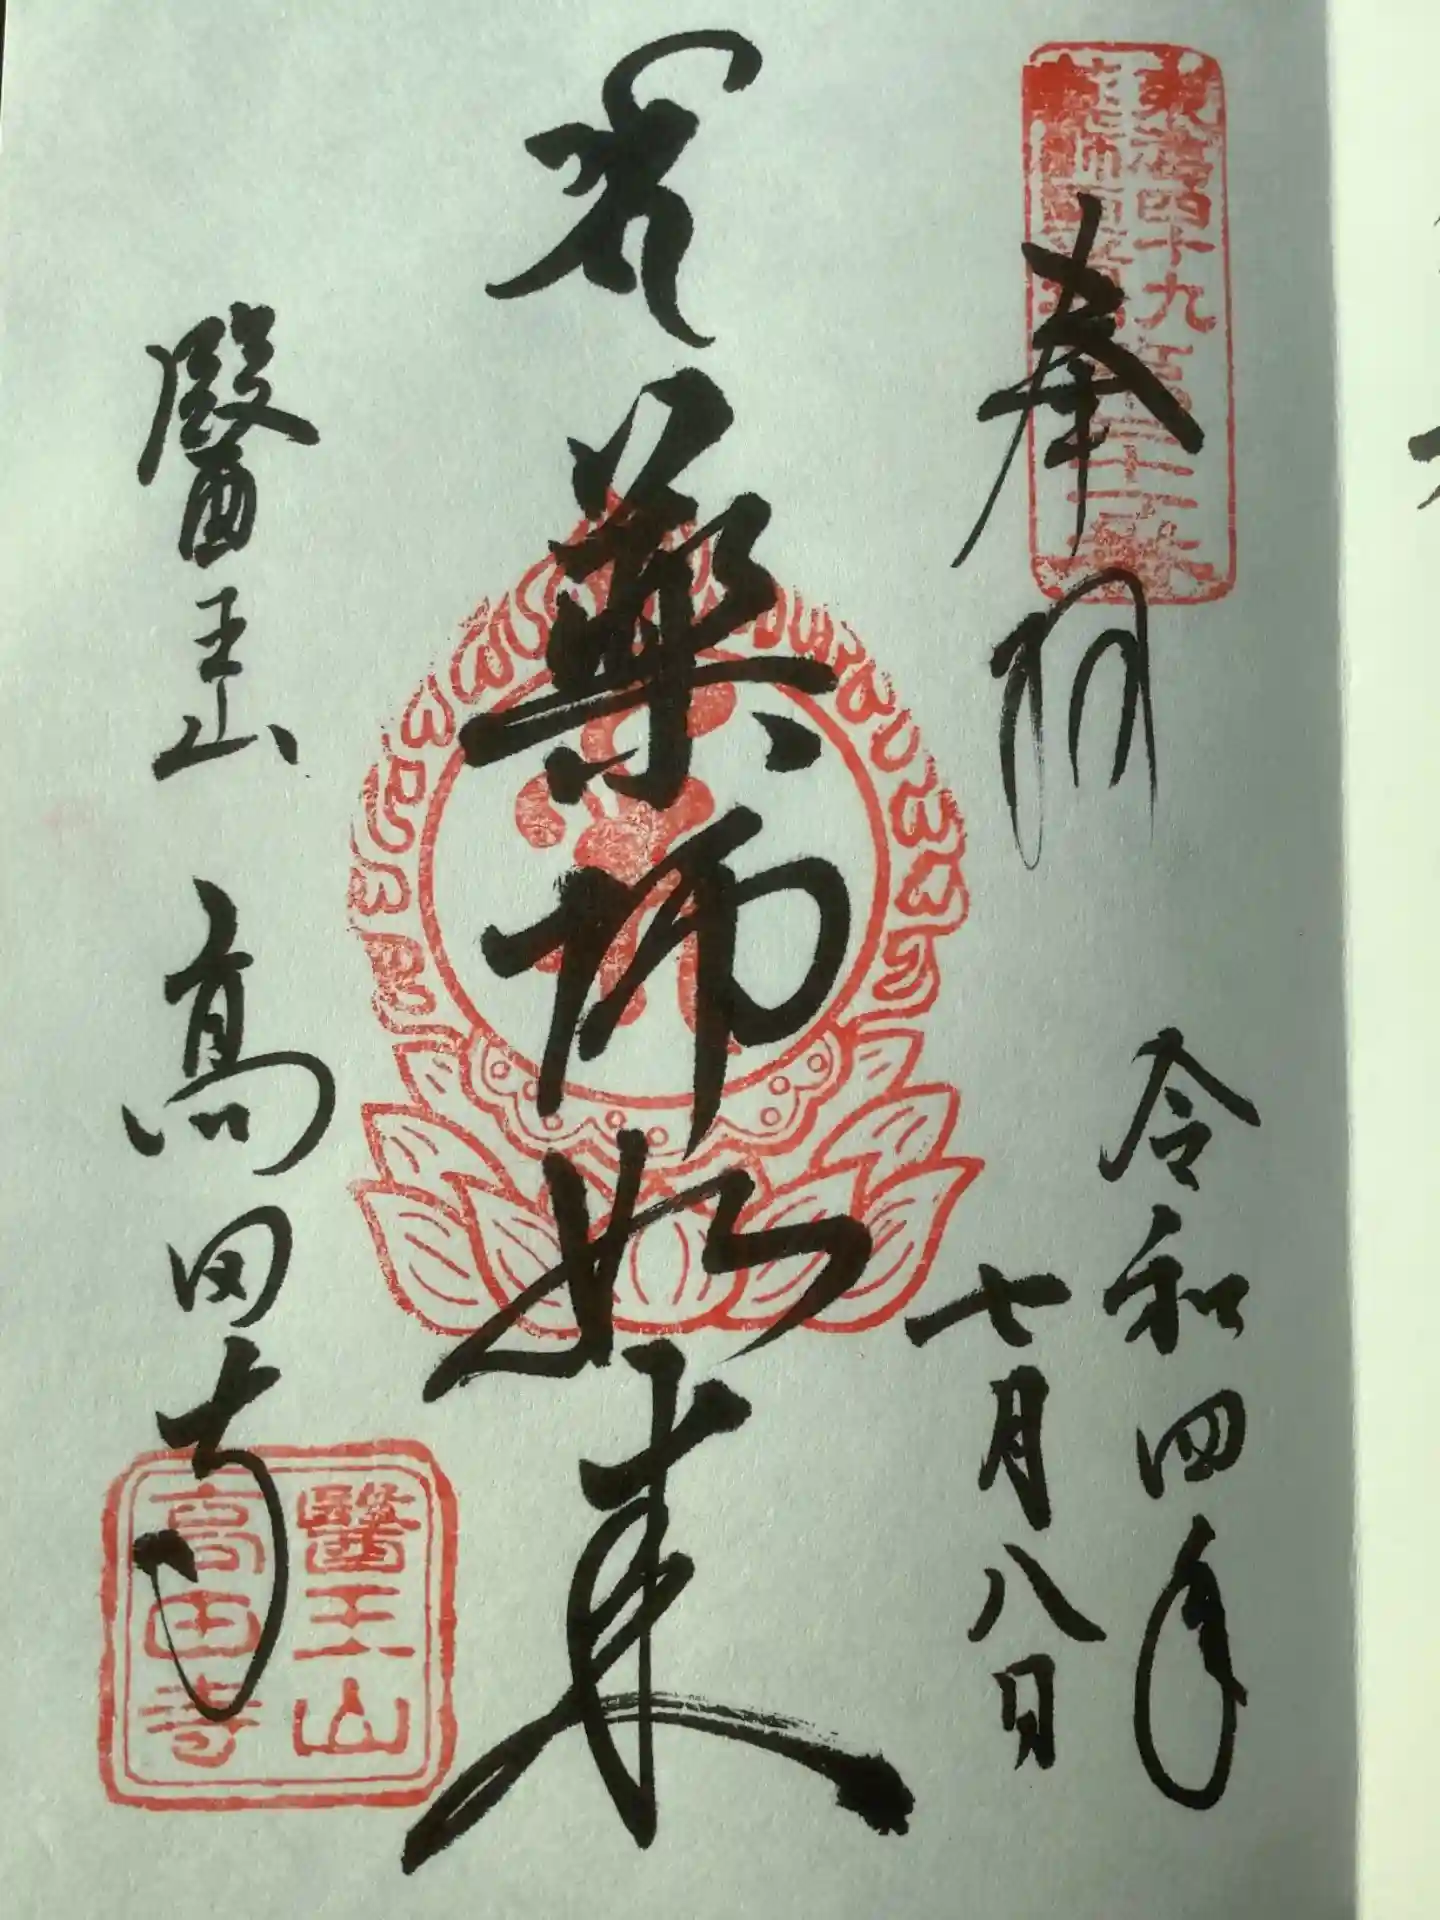 東海四十九
薬師
第三十二
奉拝
令和四年
七月八日
薬師如来
醫王山 高田寺
醫王山
高田寺